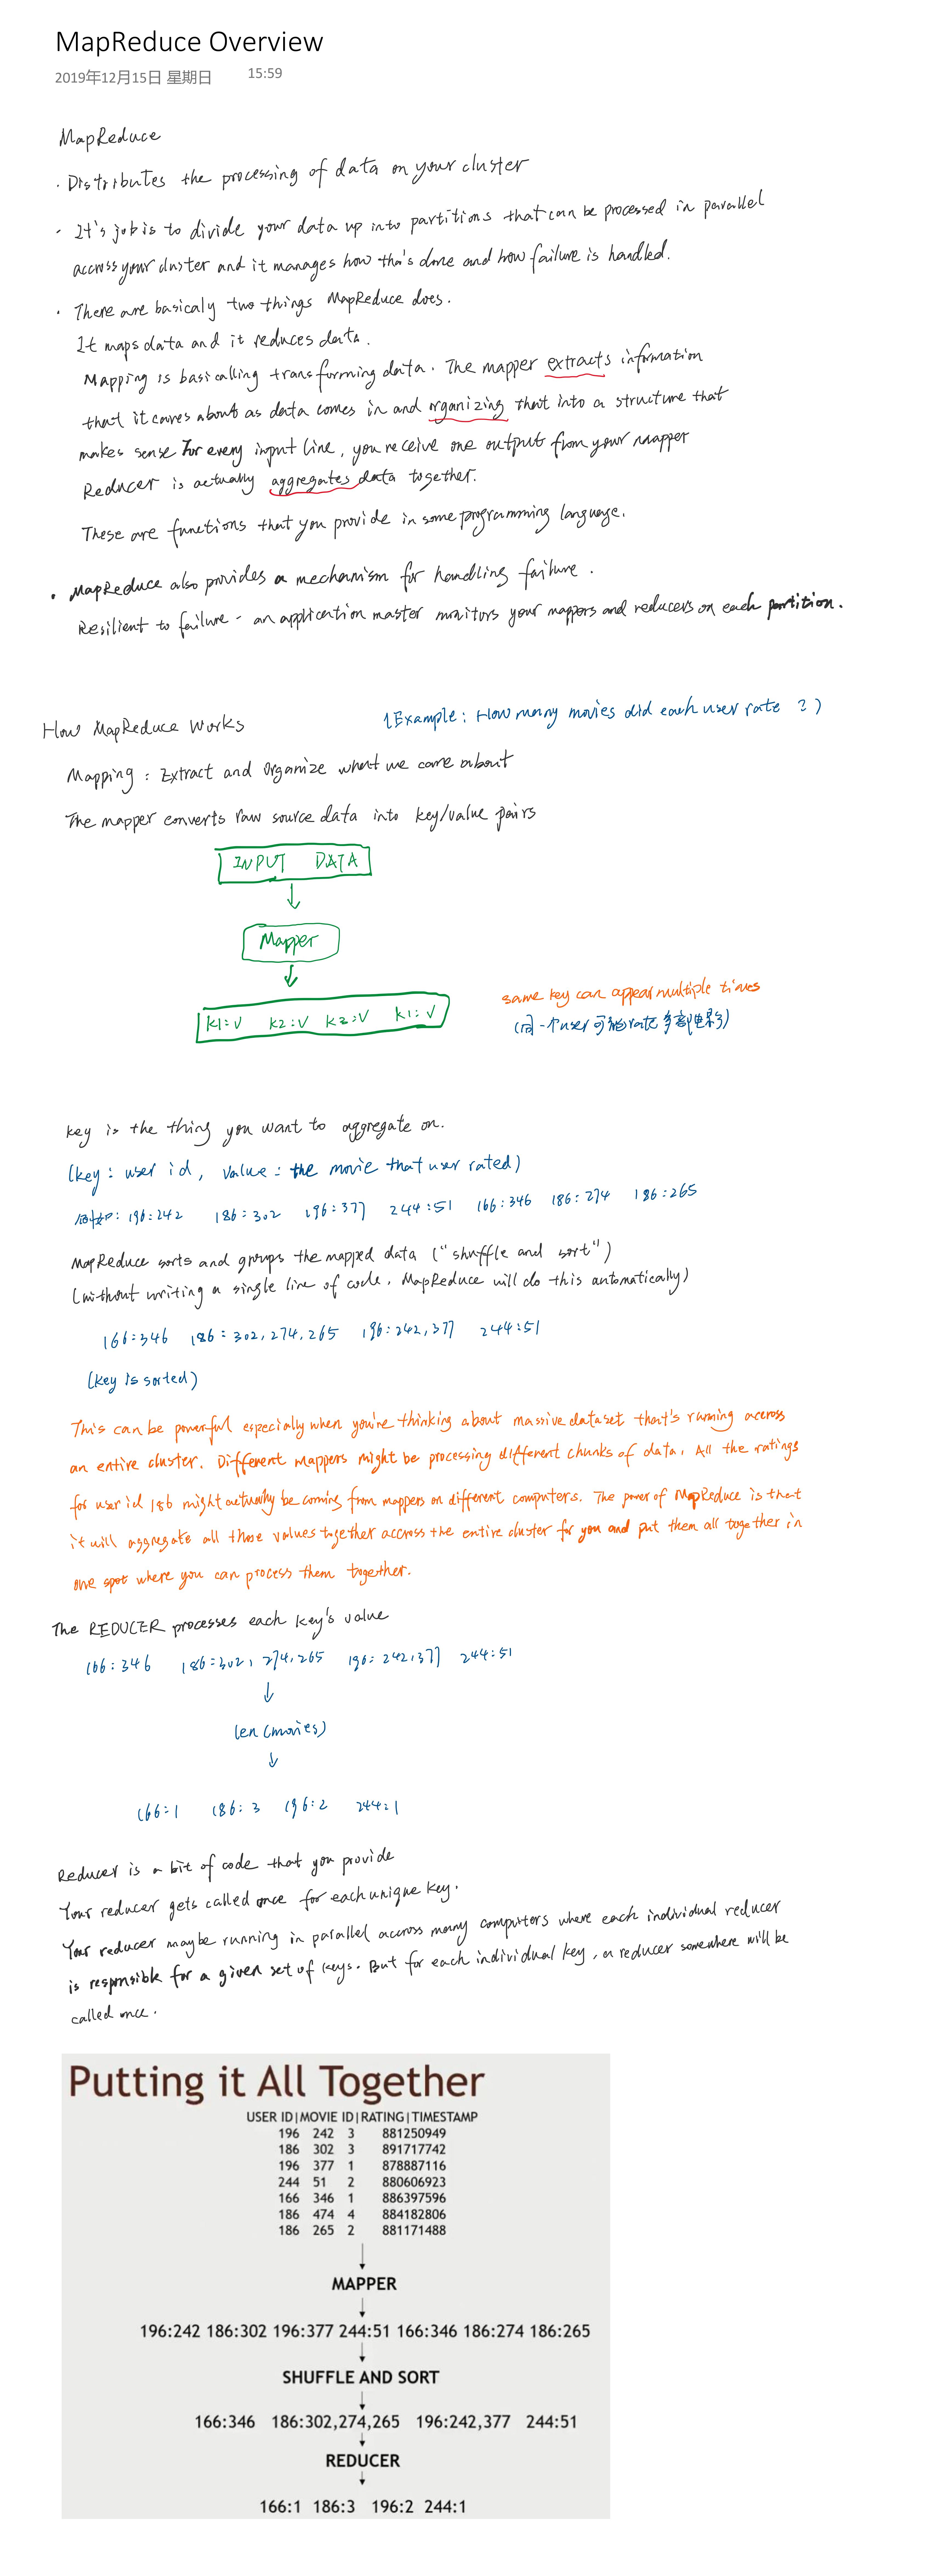 MapReduce Overview
2019年12月15日 星期日 15:59
MapReduce
· Distributes the processing of data on your cluster
· It's job is to divide your data up into partitions that can be processed in parallel
accross your cluster and it manages how tha's done and how failure is handled.
· There are basicaly two things MapReduce does.
It maps data and it reduces data.
Mapping is basicalling transforming data. The mapper extracts information
that it cares about as data comes in and organizing that into a structure that
makes sense For every input line, you receive one output from your mapper
Reducer is actually aggregates data together.
These are functions that you provide in some programming language.
· MapReduce also provides a mechanism for handling failure.
Resilient to failure - an application master monitors your mappers and reducers on each partition.
How MapReduce Works (Example: How many movies did each user rate ?)
Mapping : Extract and Organize what we care about
The mapper converts raw source data into key/value pairs
INPUT DATA
Mapper
K1:V K2:V K3:V K1:V
same key can appear multiple times
(同一个user可能rate多部电影)
key is the thing you want to aggregate on.
(key : user id, value : the movie that user rated)
例如: 196:242 186:302 196:377 244:51 166:346 186:274 186:265
MapReduce sorts and groups the mapped data ("shuffle and sort")
(without writing a single line of code, MapReduce will do this automatically)
166:346 186:302,274,265 196:242,377 244:51
(key is sorted)
This can be powerful especially when you're thinking about massive dataset that's running accross
an entire cluster. Different mappers might be processing different chunks of data. All the ratings
for user id 186 might actually be coming from mappers on different computers. The power of MapReduce is that
it will aggregate all those values together accross the entire cluster for you and put them all together in
one spot where you can process them together.
The REDUCER processes each key's value
166:346 186:302,274,265 196:242,377 244:51
len(movies)
166:1 186:3 196:2 244:1
Reducer is a bit of code that you provide
Your reducer gets called once for each unique key.
Your reducer maybe running in parallel accross many computers where each individual reducer
is responsible for a given set of keys. But for each individual key, a reducer somewhere will be
called once.
Putting it All Together
USER ID|MOVIE ID|RATING|TIMESTAMP
196 242 3 881250949
186 302 3 891717742
196 377 1 878887116
244 51 2 880606923
166 346 1 886397596
186 474 4 884182806
186 265 2 881171488
MAPPER
196:242 186:302 196:377 244:51 166:346 186:274 186:265
SHUFFLE AND SORT
166:346 186:302,274,265 196:242,377 244:51
REDUCER
166:1 186:3 196:2 244:1